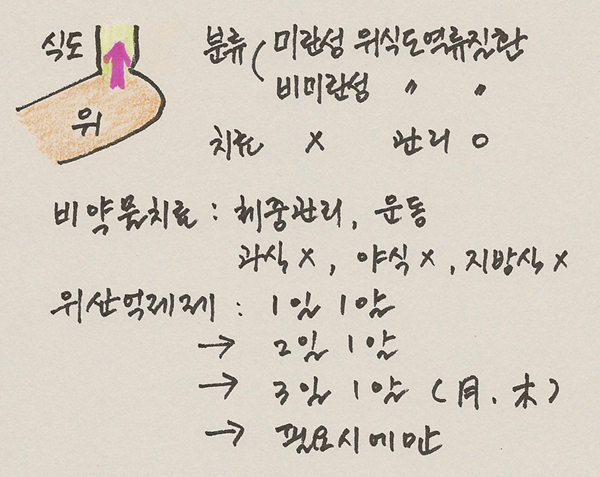 식도
위
분류 ( 미란성 위식도역류질환
비미란성 〃 〃
치료 X 관리 O
비약물치료 : 체중관리, 운동
과식 X, 야식 X, 지방식 X
위산억제제 : 1일 1알
→ 2일 1알
→ 3일 1알 (月, 木)
→ 필요시에만